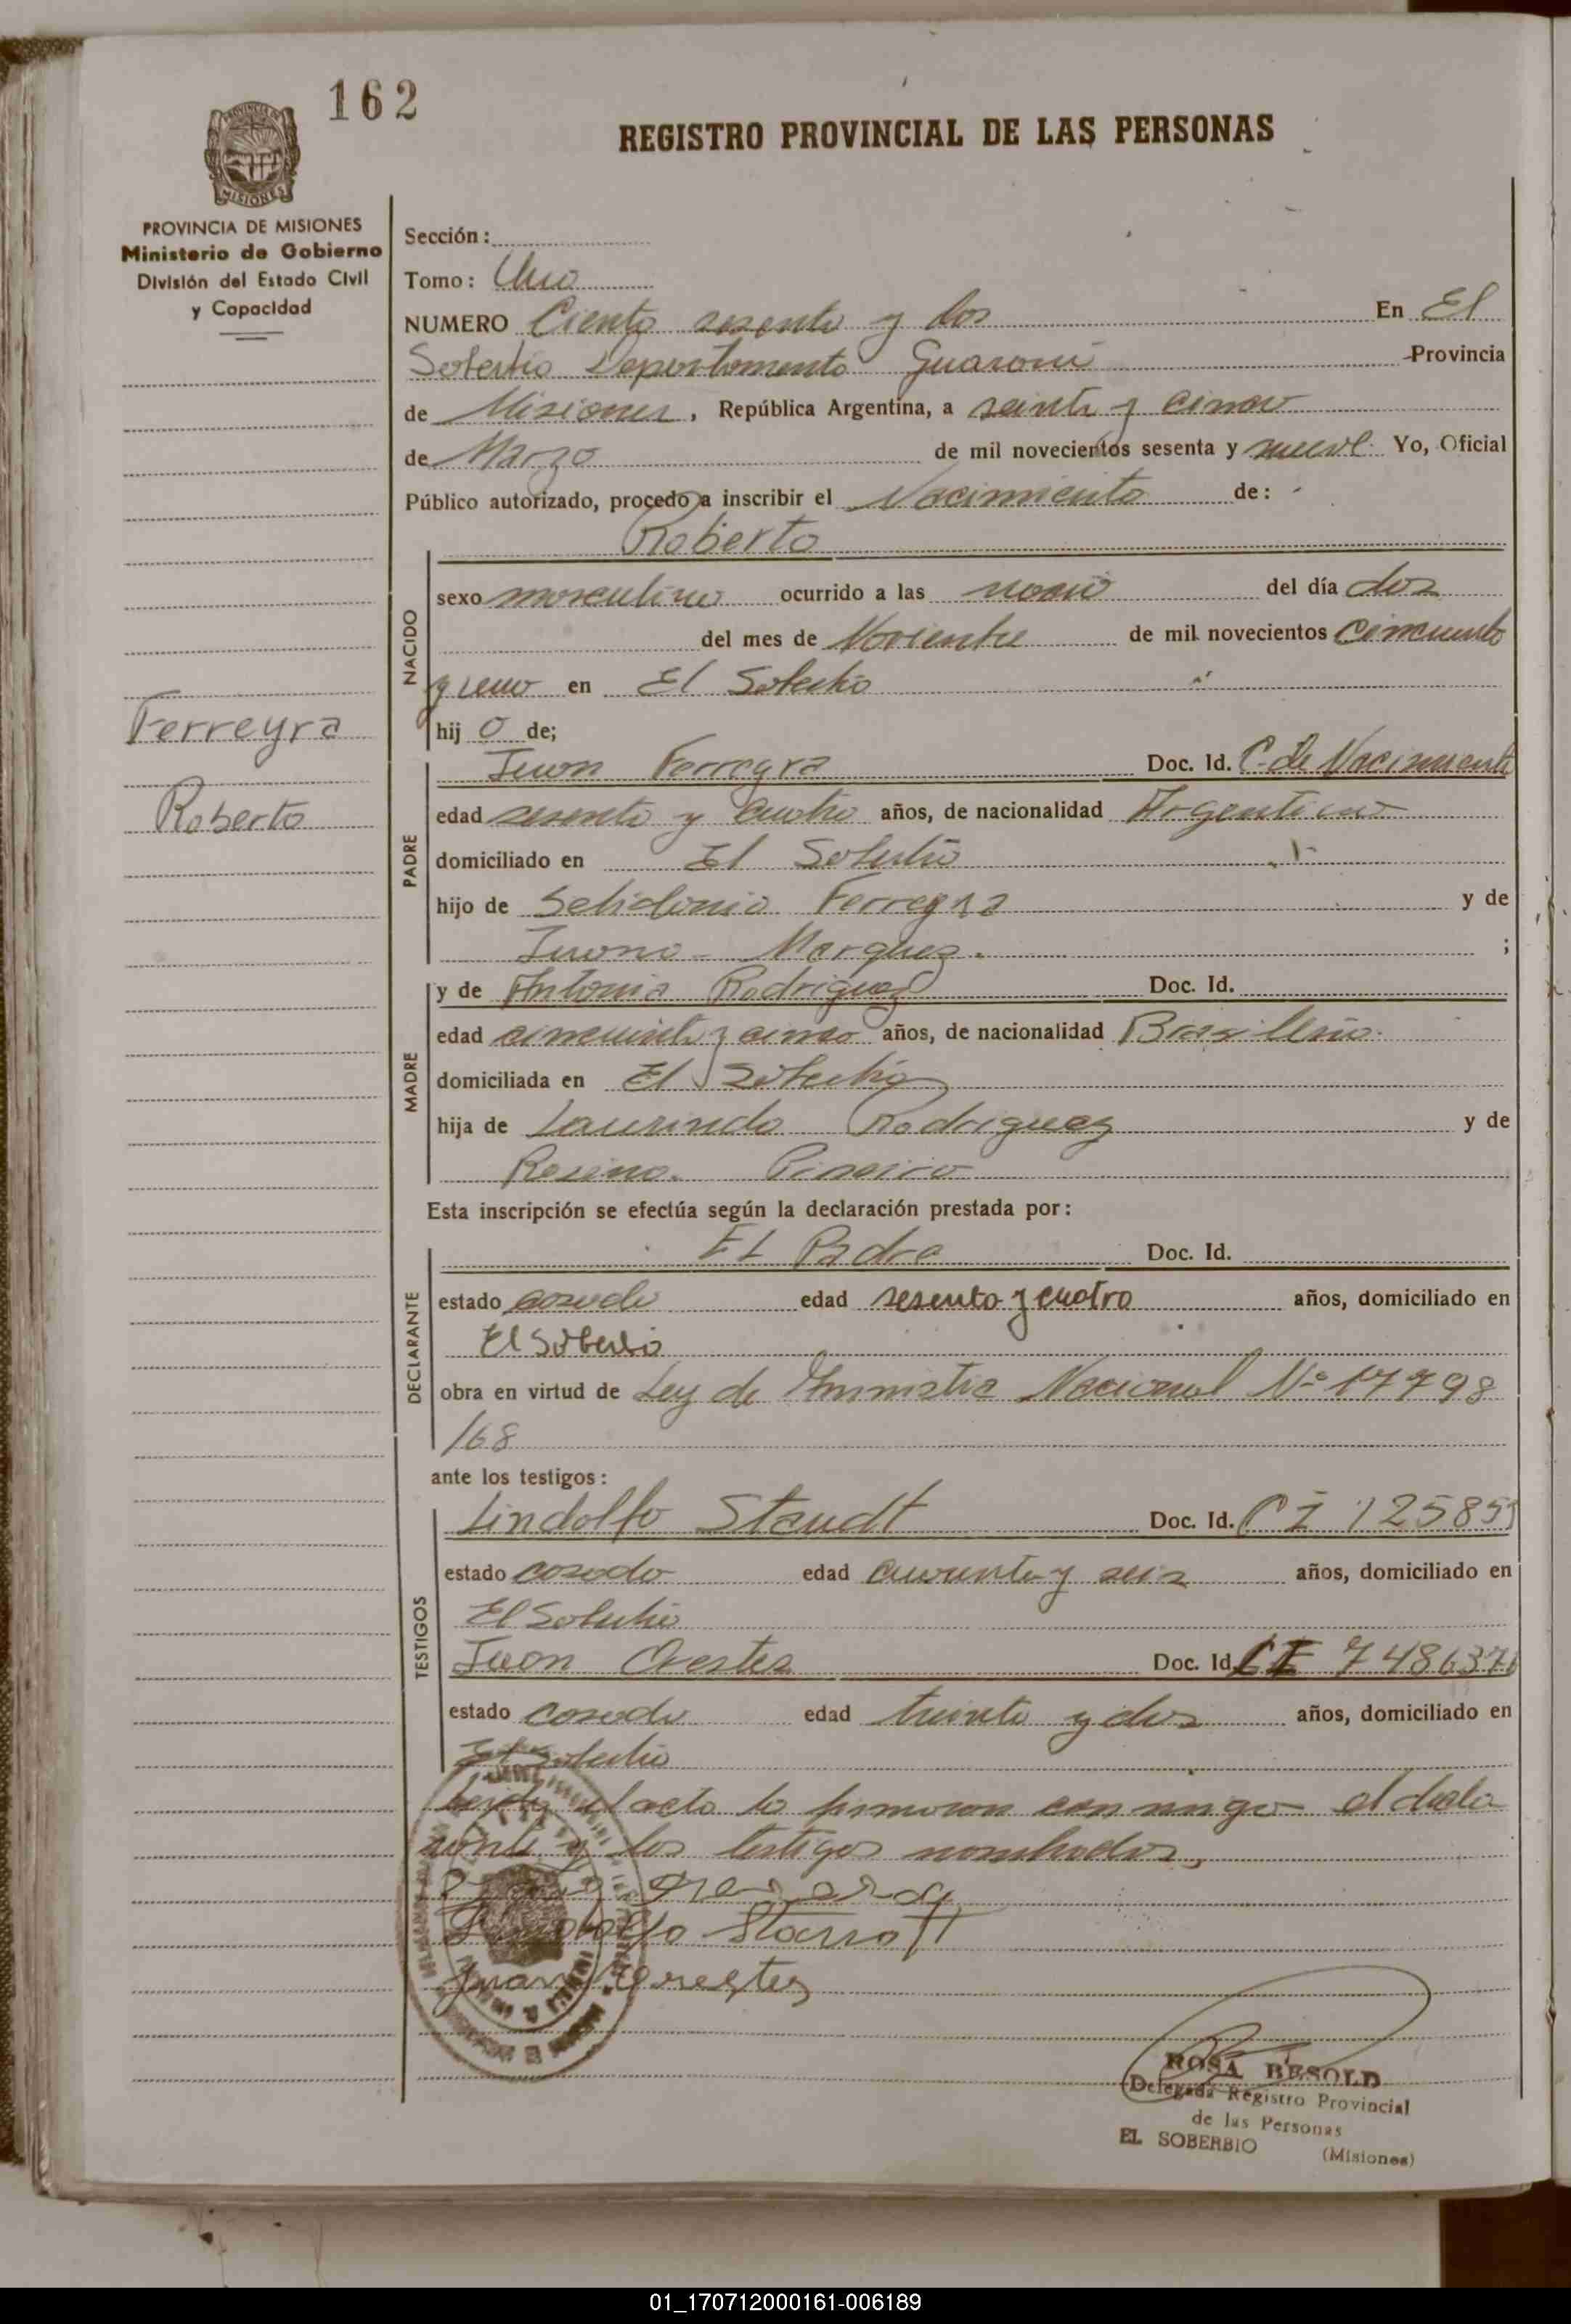 162
REGISTRO PROVINCIAL DE LAS PERSONAS
PROVINCIA DE MISIONES
MISIONES
PROVINCIA DE MISIONES
Ministerio de Gobierno
División del Estado Civil
y Capacidad
Ferreyra
Roberto
Sección:
Tomo: Uno
NUMERO Ciento sesenta y dos En El
Soberbio Departamento Guaraní Provincia
de Misiones, República Argentina, a veinte y cinco
de Marzo de mil novecientos sesenta y nueve Yo, Oficial
Público autorizado, procedo a inscribir el Nacimiento de:
Roberto
NACIDO
sexo masculino ocurrido a las del día dos
del mes de Noviembre de mil novecientos cincuenta
y uno en El Soberbio
hij o de;
PADRE
Juan Ferreyra Doc. Id. C. de Nacimiento
edad sesenta y cuatro años, de nacionalidad Argentino
domiciliado en El Soberbio
hijo de Selidonio Ferreyra y de
Juana Marquez. ;
MADRE
y de Antonia Rodriguez Doc. Id.
edad cincuenta y cinco años, de nacionalidad Brasileña.
domiciliada en El Soberbio
hija de Laurindo Rodriguez y de
Rosina
Esta inscripción se efectúa según la declaración prestada por:
DECLARANTE
El Padre Doc. Id.
estado casado edad sesenta y cuatro años, domiciliado en
El Soberbio
obra en virtud de Ley de Amnistia Nacional Nº 17798
/68
ante los testigos:
TESTIGOS
Lindolfo Staudt Doc. Id. C I 125859
estado casado edad cuarenta y seis años, domiciliado en
El Soberbio
Juan Orestes Doc. Id. C I 7486376
estado casado edad treinta y dos años, domiciliado en
El Soberbio
Leida el acta la firmaron con migo el decla
rante y los testigos nombrados,
Juan Orestes
ROSA BESOLD
Delegada Registro Provincial
de las Personas
EL SOBERBIO (Misiones)
01_170712000161-006189